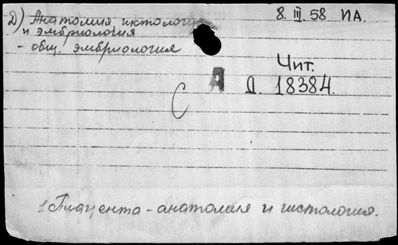 Д) Анатомия гистология 8.III.58 ИА.
и эмбриология
- общ. эмбриология
Чит.
А Д. 18384.
С
1 Плацента - анатомия и гистология.